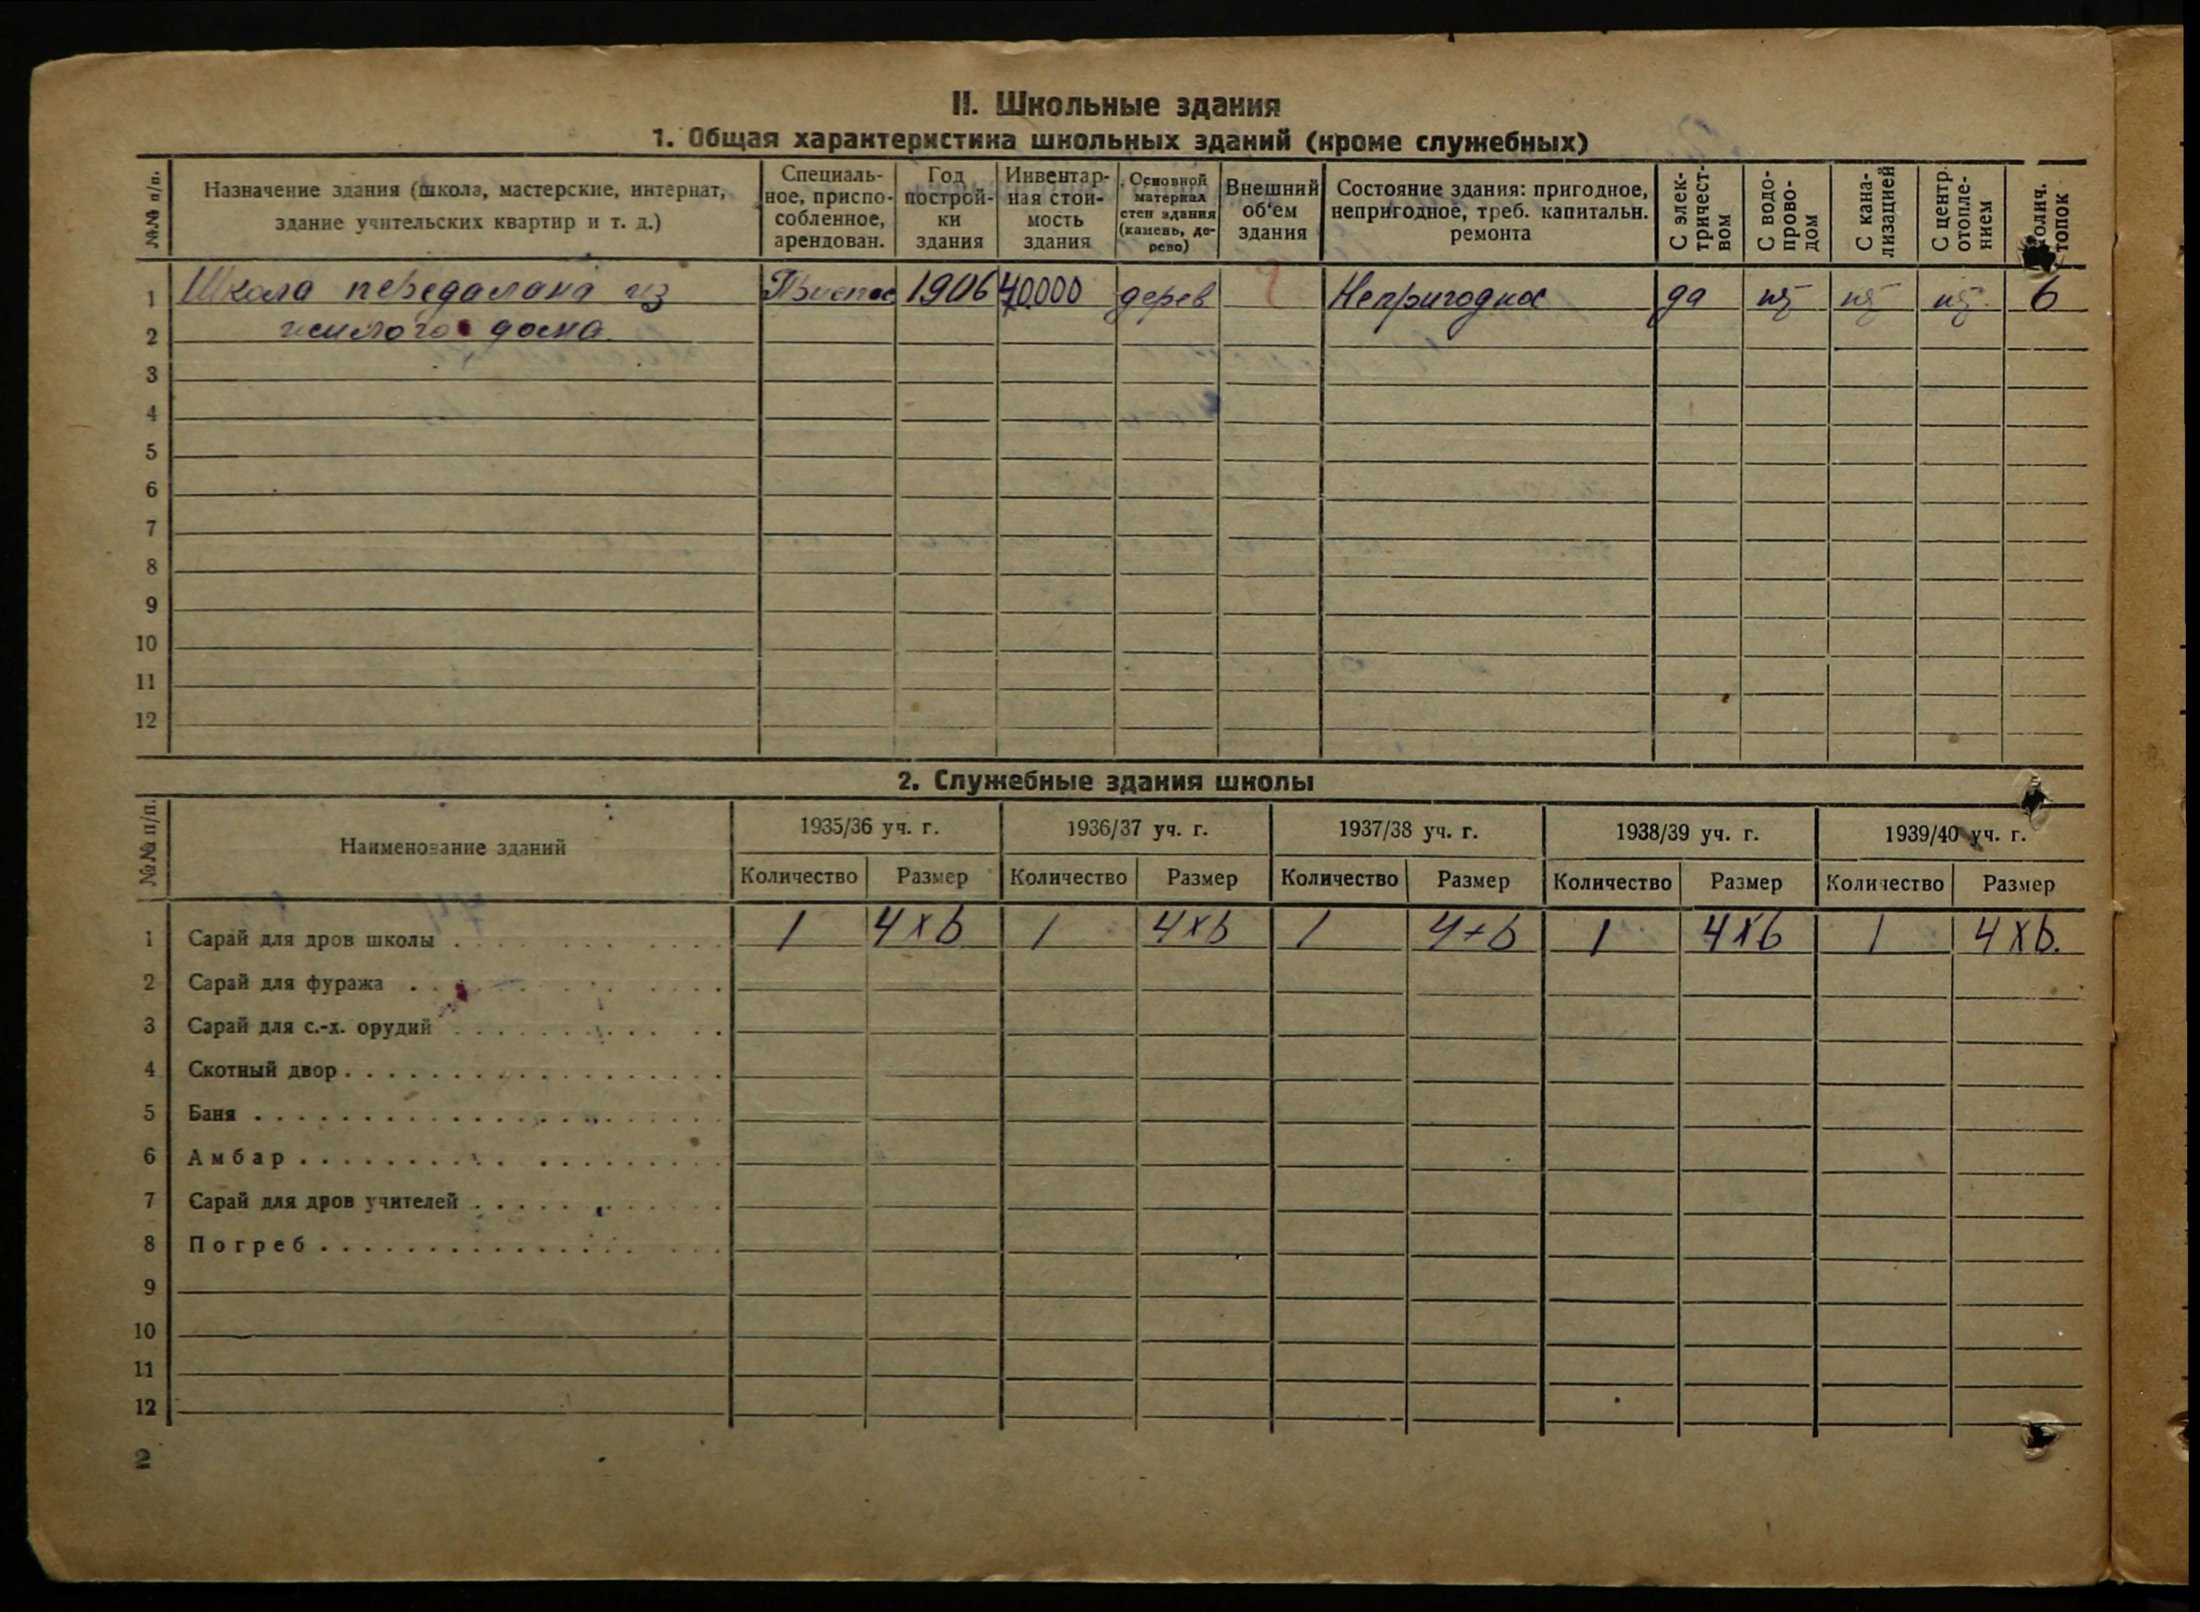 II. Школьные здания
1. Общая характеристика школьных зданий (кроме служебных)
№№ п/п. Назначение здания (школа, мастерские, интернат, здание учительских квартир и т. д.) Специальное, приспособленное, арендован. Год постройки здания Инвентарная стоимость здания Основной материал стен здания (камень, дерево) Внешний об'ем здания Состояние здания: пригодное, непригодное, треб. капитальн. ремонта С электричеством С водопроводом С канализацией С центр. отоплением Колич. топок
1 Школа переделана из 1906 40.000 дерев ? Непригодное да 6
2 жилого дома.
3
4
5
6
7
8
9
10
11
12
2. Служебные здания школы
№№ п/п. Наименование зданий 1935/36 уч. г. 1936/37 уч. г. 1937/38 уч. г. 1938/39 уч. г. 1939/40 уч. г.
Количество Размер Количество Размер Количество Размер Количество Размер Количество Размер
1 Сарай для дров школы 1 4х6 1 4х6 1 4х6 1 4х6 1 4х6.
2 Сарай для фуража
3 Сарай для с.-х. орудий
4 Скотный двор
5 Баня
6 Амбар
7 Сарай для дров учителей
8 Погреб
9
10
11
12
2